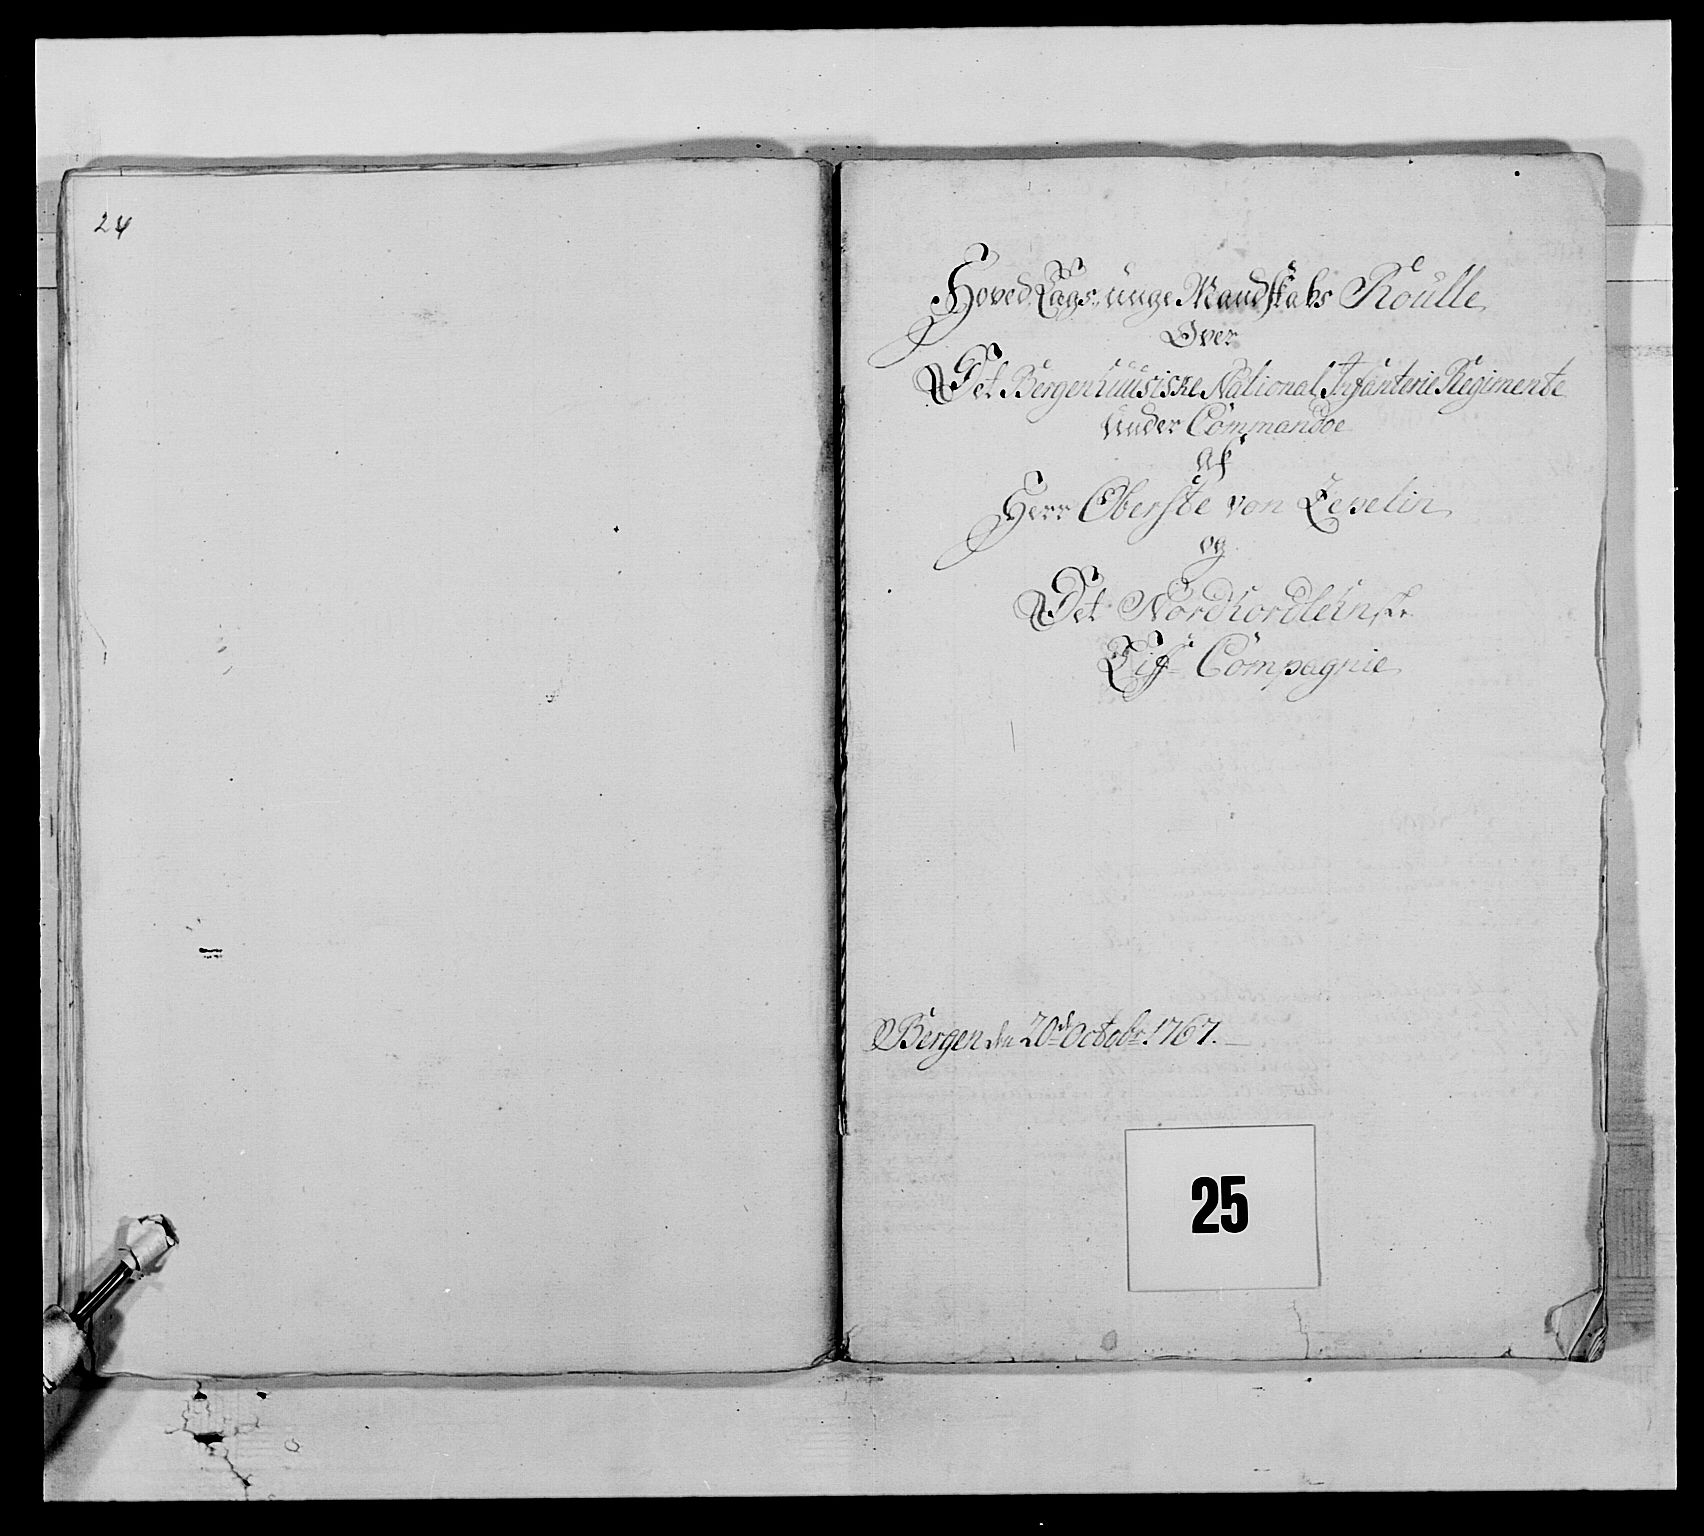 24
Hoved Lægs unge Mandskabs Roulle
Over
Det Bergenhuusiske National Infanterie Regimente
Under Commandoe
af
Herr Oberste von Zepelin
og
Det Nordhordlehnske
Liff Compagnie
Bergen den 20de Octobr: 1767.
25